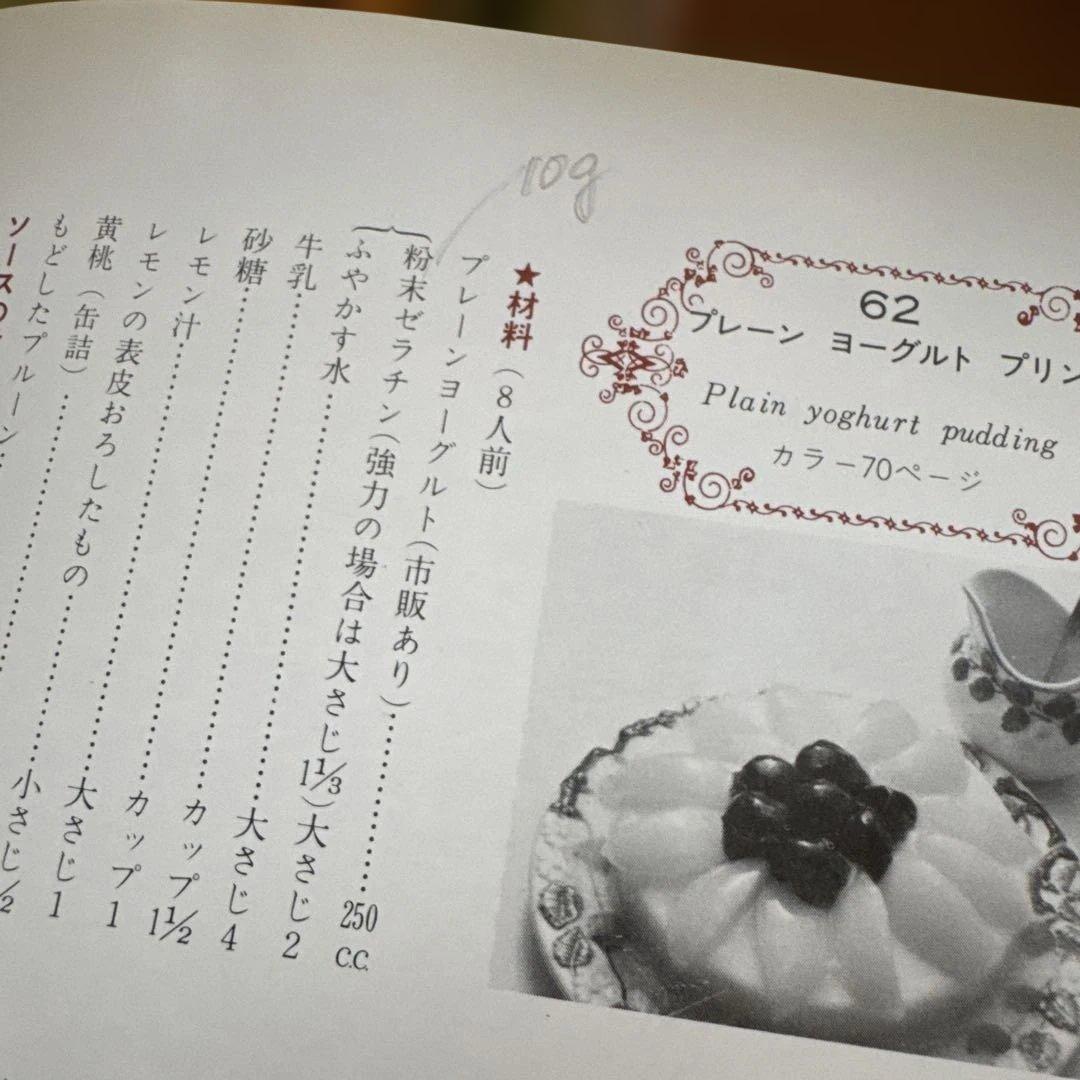 62
プレーン ヨーグルト プリン
Plain yoghurt pudding
カラー70ページ
10g
★材料（8人前）
プレーンヨーグルト（市販あり）……250c.c.
粉末ゼラチン（強力の場合は大さじ1⅓）大さじ2
ふやかす水……大さじ4
牛乳……カップ1½
砂糖……カップ1
レモン汁……大さじ1
レモンの表皮おろしたもの……小さじ½
黄桃（缶詰）……
もどしたプルーン……
ソースの